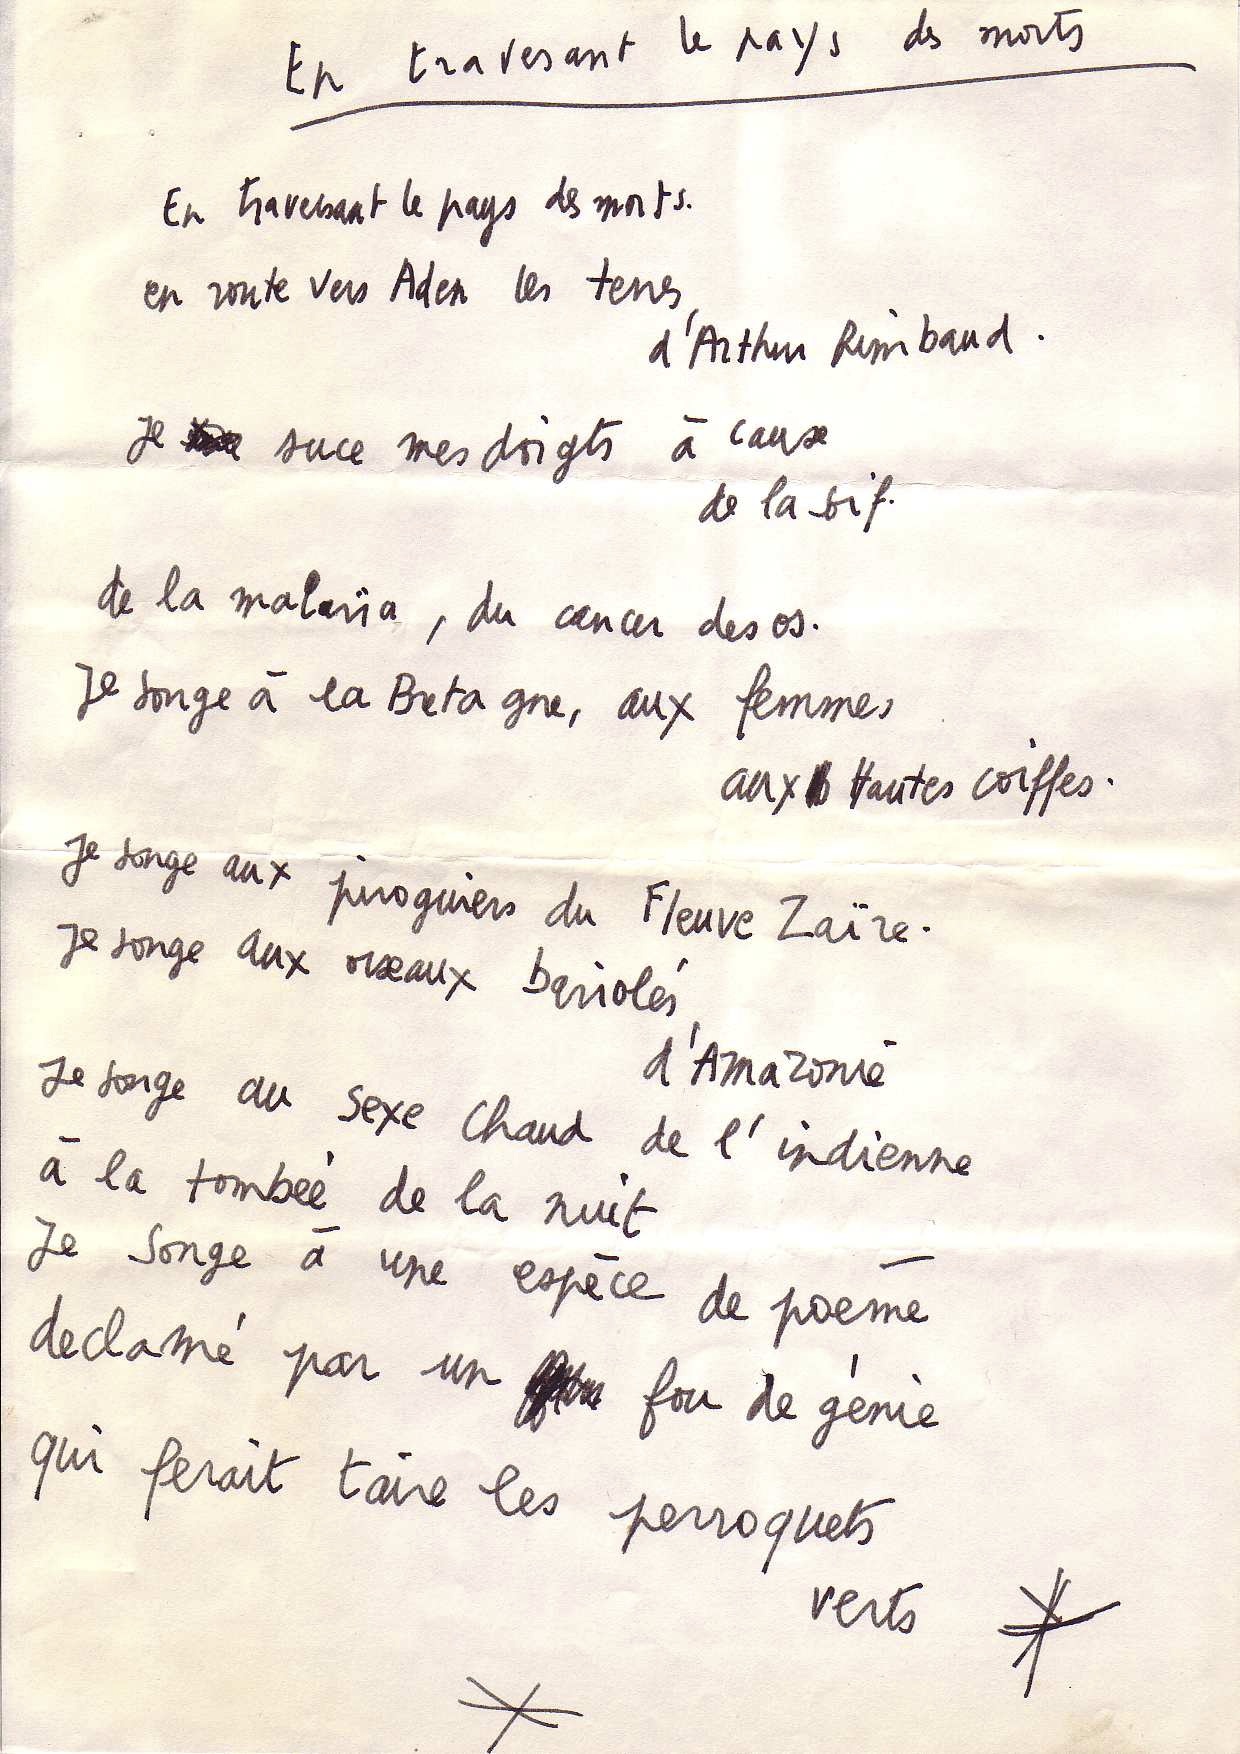 En traversant le pays des morts
En traversant le pays des morts.
en route vers Aden les terres
d'Arthur Rimbaud.
Je suce mes doigts à cause
de la soif.
de la malaria, du cancer des os.
Je songe à la Bretagne, aux femmes
aux Hautes coiffes.
Je songe aux piroguiers du Fleuve Zaïre.
Je songe aux oiseaux bariolés
d'Amazonie
Je songe au sexe chaud de l'indienne
à la tombeé de la nuit
Je songe à une espèce de poème
declamé par un fou de génie
qui ferait taire les perroquets
verts